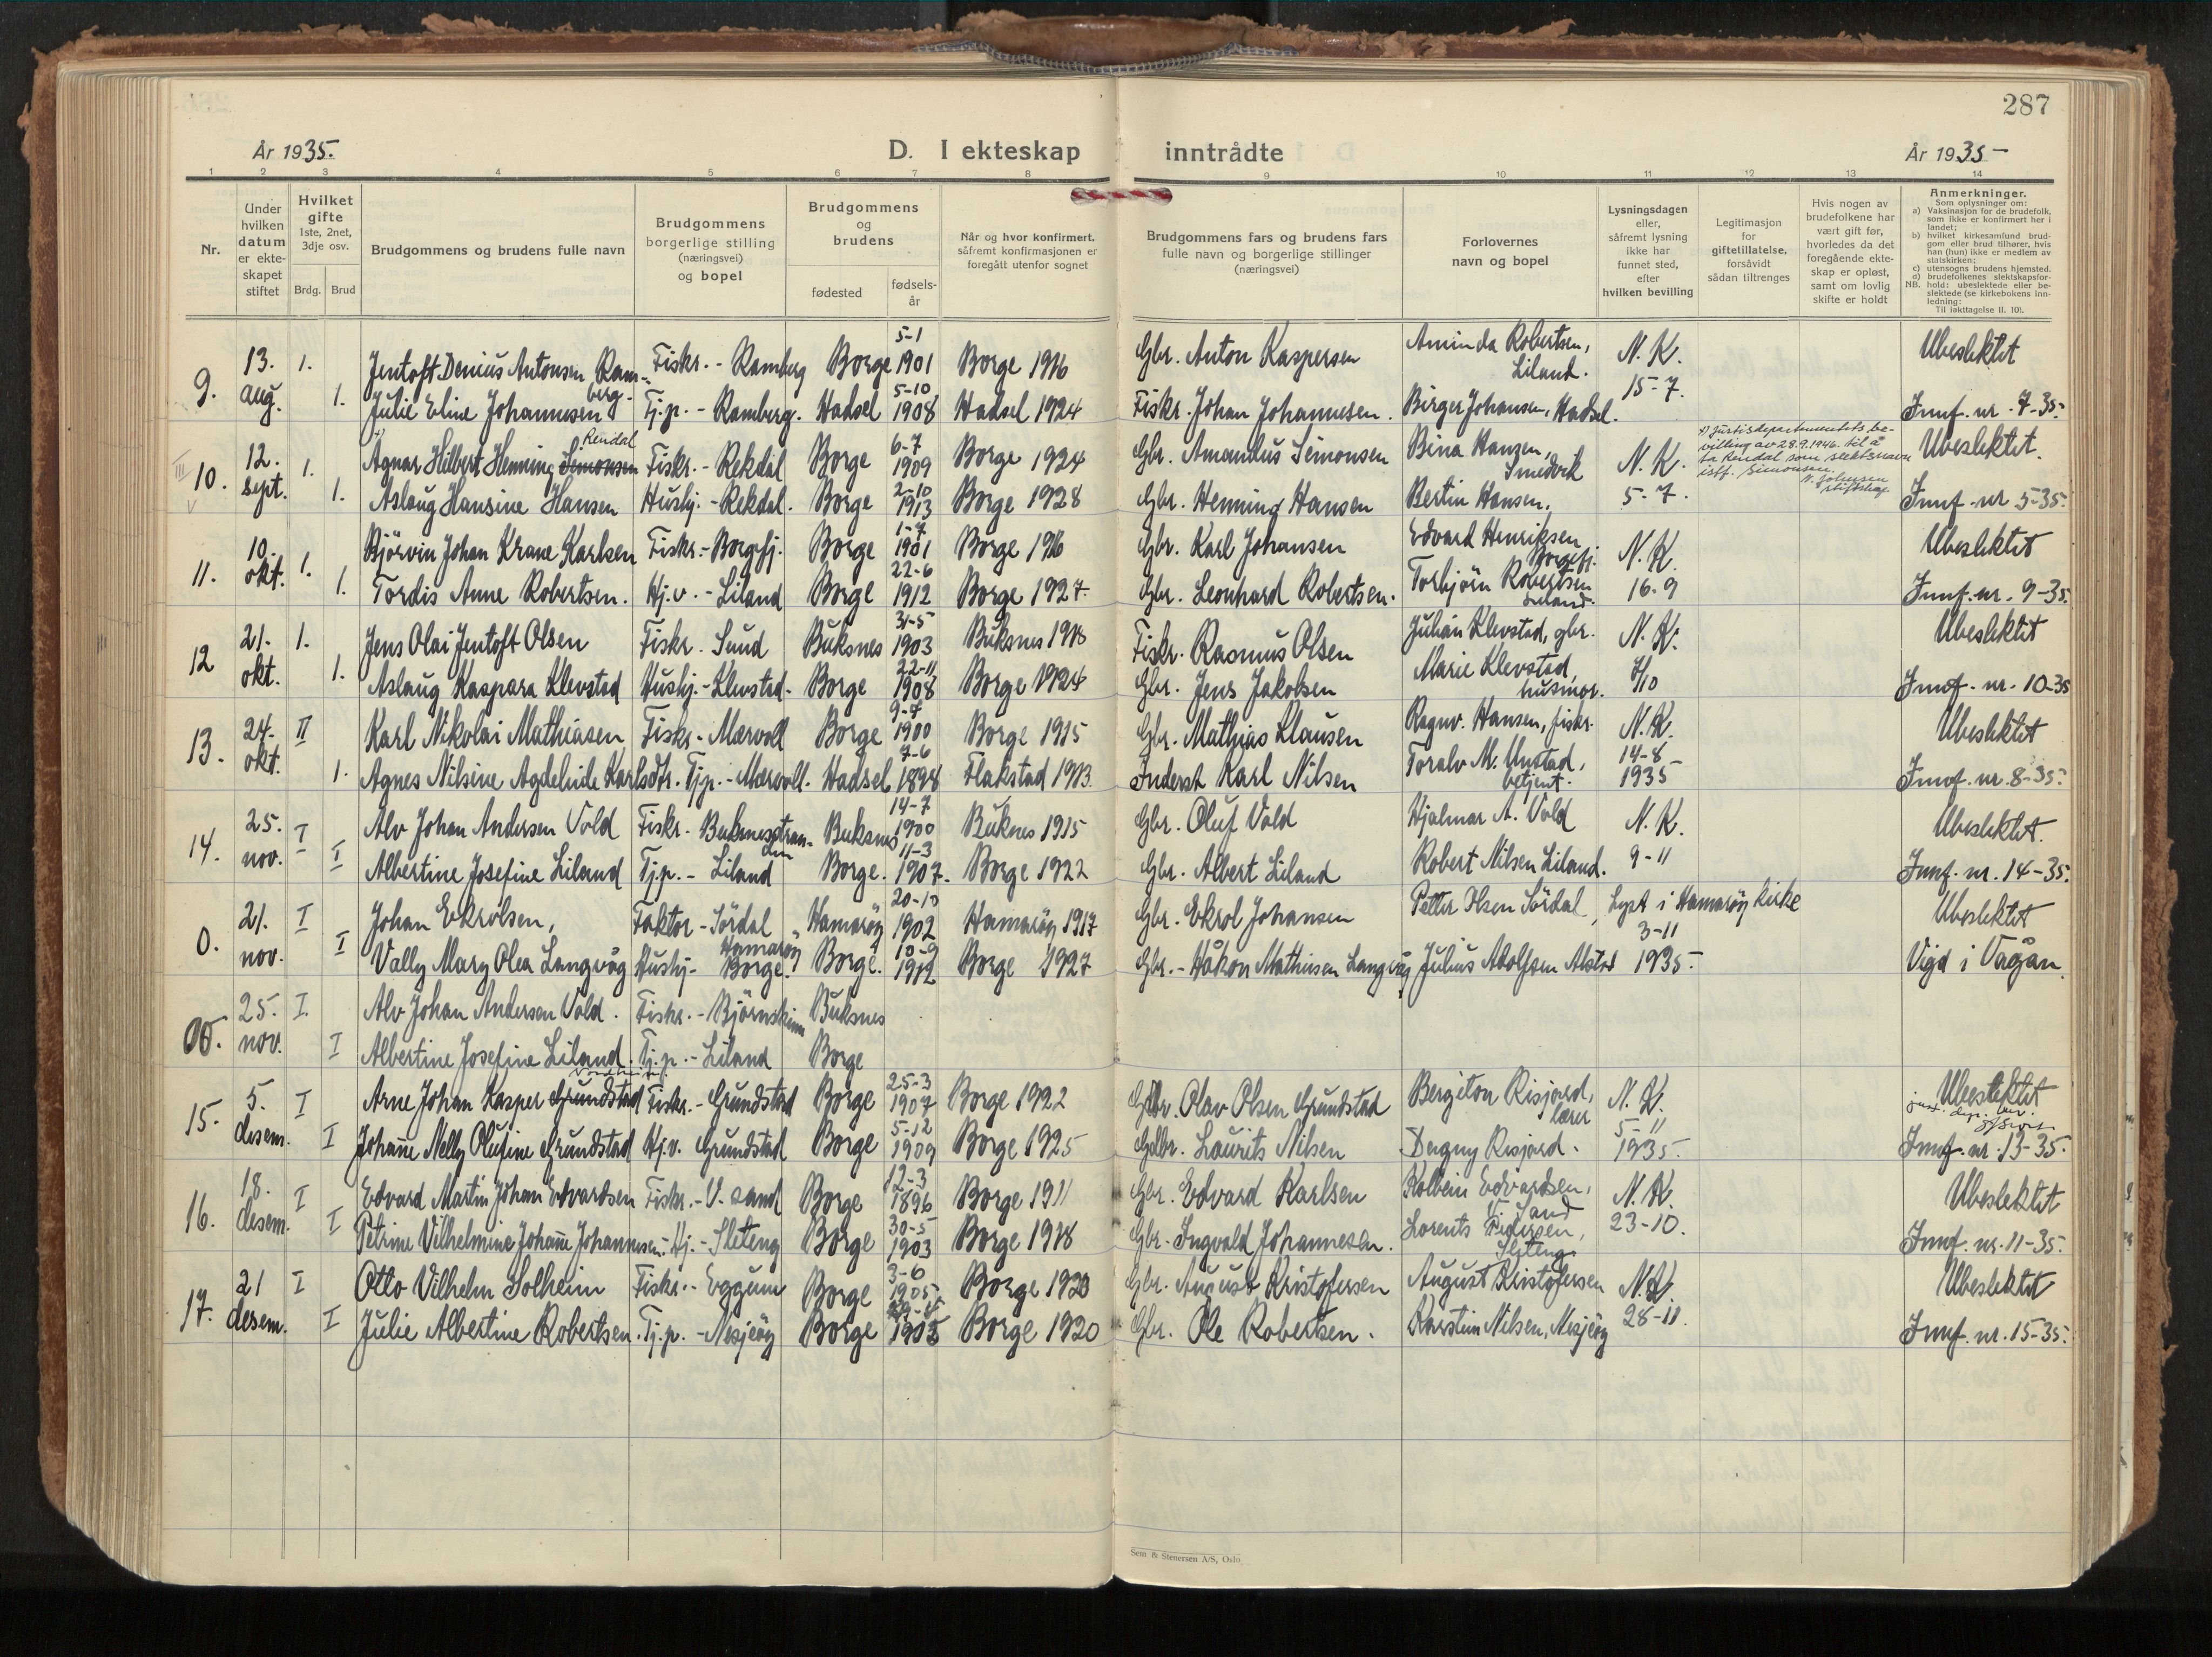 287
År 1935.
D. I ekteskap inntrådte
År 1935-
1 2 3 4 5 6 7 8 9 10 11 12 13 14
Nr.
Under hvilken datum er ekteskapet stiftet
Hvilket gifte 1ste, 2net, 3dje osv.
Brdg. Brud
Brudgommens og brudens fulle navn
Brudgommens borgerlige stilling (næringsvei) og bopel
Brudgommens og brudens
fødested
fødselsår
Når og hvor konfirmert, såfremt konfirmasjonen er foregått utenfor sognet
Brudgommens fars og brudens fars fulle navn og borgerlige stillinger (næringsvei)
Forlovernes navn og bopel
Lysningsdagen eller, såfremt lysning ikke har funnet sted, efter hvilken bevilling
Legitimasjon for giftetillatelse, forsåvidt sådan tiltrenges
Hvis nogen av brudefolkene har vært gift før, hvorledes da det foregående ekteskap er opløst, samt om lovlig skifte er holdt
Anmerkninger.
Som oplysninger om:
a) Vaksinasjon for de brudefolk, som ikke er konfirmert her i landet;
b) hvilket kirkesamfund brudgom eller brud tilhører, hvis han (hun) ikke er medlem av statskirken;
c) utensogns brudens hjemsted.
d) brudefolkenes slektskapsforhold: ubeslektede eller beslektede (se kirkebokens innledning:
NB.
Til iakttagelse II. 10).
9. 13. aug. 1. Jentoft Denius Antonsen Ramberg. Fiskr. - Ramberg Borge 5-1 1901 Borge 1916 Gbr. Anton Kaspersen Aminda Robertsen, Liland. N. K. 15-7. Ubeslektet
1. Julie Eline Johannesen Tj.p. - Ramberg. Hadsel 5-10 1908 Hadsel 1924 Fiskr. Johan Johannesen. Birger Johansen, Hadsel. Innf. nr. 7-35.
10. 12. sept. 1. Agnar Hilbert Henning Simonsen Rendal Fiskr. - Rekdal Borge 6-7 1909 Borge 1924 Gbr. Amandus Simonsen Bina Hansen, Smedvik N. K. 5-7. Ubeslektet.
x) Justisdepartementets bevilling av 28.9.1946 til å ta Rendal som slektsnavn istf. Simonsen.
1. Aslaug Hansine Hansen Hushj. - Rekdal. Borge 2-10 1913 Borge 1928 Gbr. Henning Hansen Bertin Hansen. Innf. nr 5-35.
11. 10. okt. 1. Björvin Johan Krane Karlsen Fiskr. - Borgfj. Borge 1-7 1901 Borge 1916 Gbr. Karl Johansen Edvard Henriksen Borgefj. N. K. 16-9 Ubeslektet
1. Tordis Anne Robertsen. Hj.v. - Liland Borge 22-6 1912 Borge 1927. Gbr. Leonhard Robertsen. Torbjörn Robertsen Liland. Innf. nr. 9-35.
12 21. okt. 1. Jens Olai Jentoft Olsen Fiskr. Sund Buksnes 31-5 1903 Buksnes 1918 Fiskr. Rasmus Olsen Julian Klevstad, gbr. N. K. 7/10 Ubeslektet
1. Aslaug Kaspara Klevstad Hushj. - Klevstad. Borge 22-11 1908 Borge 1924 Gbr. Jens Jakobsen Marie Klevstad, husmor. Innf. nr. 10-35
13. 24. okt. II Karl Nikolai Mathiasen Fiskr. - Mærvoll Borge 9-7 1900 Borge 1915 Gbr. Mathias Klausen Ragnv. Hansen, fiskr. N. K. 14-8 1935 Ubeslektet
1. Agnes Nilsine Agdeluide Karlsdtr. Tjp. - Mærvoll. Hadsel 7-6 1898 Flakstad 1913. Inderst Karl Nilsen Toralv M. Unstad, betjent. Innf. nr. 8-35.
14. 25. nov. I Alv Johan Andersen Vold Fiskr. Buksnesstranden Buksnes 14-7 1900 Buksnes 1915 Gbr. Oluf Vold Hjalmar A. Vold N. K. 9-11 Ubeslektet.
I Albertine Josefine Liland Tj.p. - Liland Borge. 11-3 1907. Borge 1922 Gbr. Albert Liland Robert Nilsen Liland. Innf. nr. 14-35.
0. 21. nov. I Johan Ekrolsen, Faktor - Sördal Hamaröy Hamaröy 20-10 1902 Hamaröy 1917 Gbr. Ekrol Johansen Petter Olsen Sördal, Lyst i Hamaröy kirke 3-11 1935. Ubeslektet
I Vally Mary Olea Langvåg Hushj - Borge. Borge. 10-9 1912 Borge 1927 Gbr. - Håkon Mathisen Langvåg Julius Adolfsen Alstad Vigd i Vågan.
00. 25. nov. I. Alv Johan Andersen Vold. Fiskr. - Björnskinn Buksnes
I Albertine Josefine Liland. Tj.p. - Liland Borge
15. 5. desem. I Arne Johan Kasper Grundstad Fiskr. - Grundstad Borge 25-3 1907 Borge 1922 Gbr. Olav Olsen Grundstad Bergiton Risjord, lærer N. K. 5-11 1935. Ubeslektet
just. dep. bev.
I Johanne Nelly Olufine Grundstad Hj.v. Grundstad Borge 5-12 1909 Borge 1925 Gdbr. Laurits Nilsen Dagny Risjord. Innf. nr. 13-35.
16. 18. desem. I Edvard Martin Johan Edvardsen Fiskr. - U. sand Borge 12-3 1896 Borge 1911 Gbr. Edvard Karlsen Kolbein Edvardsen, U. Sand N. K. 23-10. Ubeslektet
I Petrine Vilhelmine Johanne Johannesen. Hj. - Sleteng Borge 30-5 1903 Borge 1918 Gbr. Ingvald Johannesen. Lorents Pedersen, Sleteng. Innf. nr. 11-35.
17. 21 desem. I Otto Vilhelm Solheim Fiskr. - Eggum Borge 3-6 1905 Borge 1920 Gbr. August Kristofersen August Kristofersen N. K. 28-11. Ubeslektet
I Julie Albertine Robertsen. Tj.p. - Nesjeöy Borge 1905 Borge 1920 Gbr. Ole Robertsen. Karstein Nilsen, Nesjeöy Innf. nr. 15-35.
Sem & Stenersen A/S, Oslo